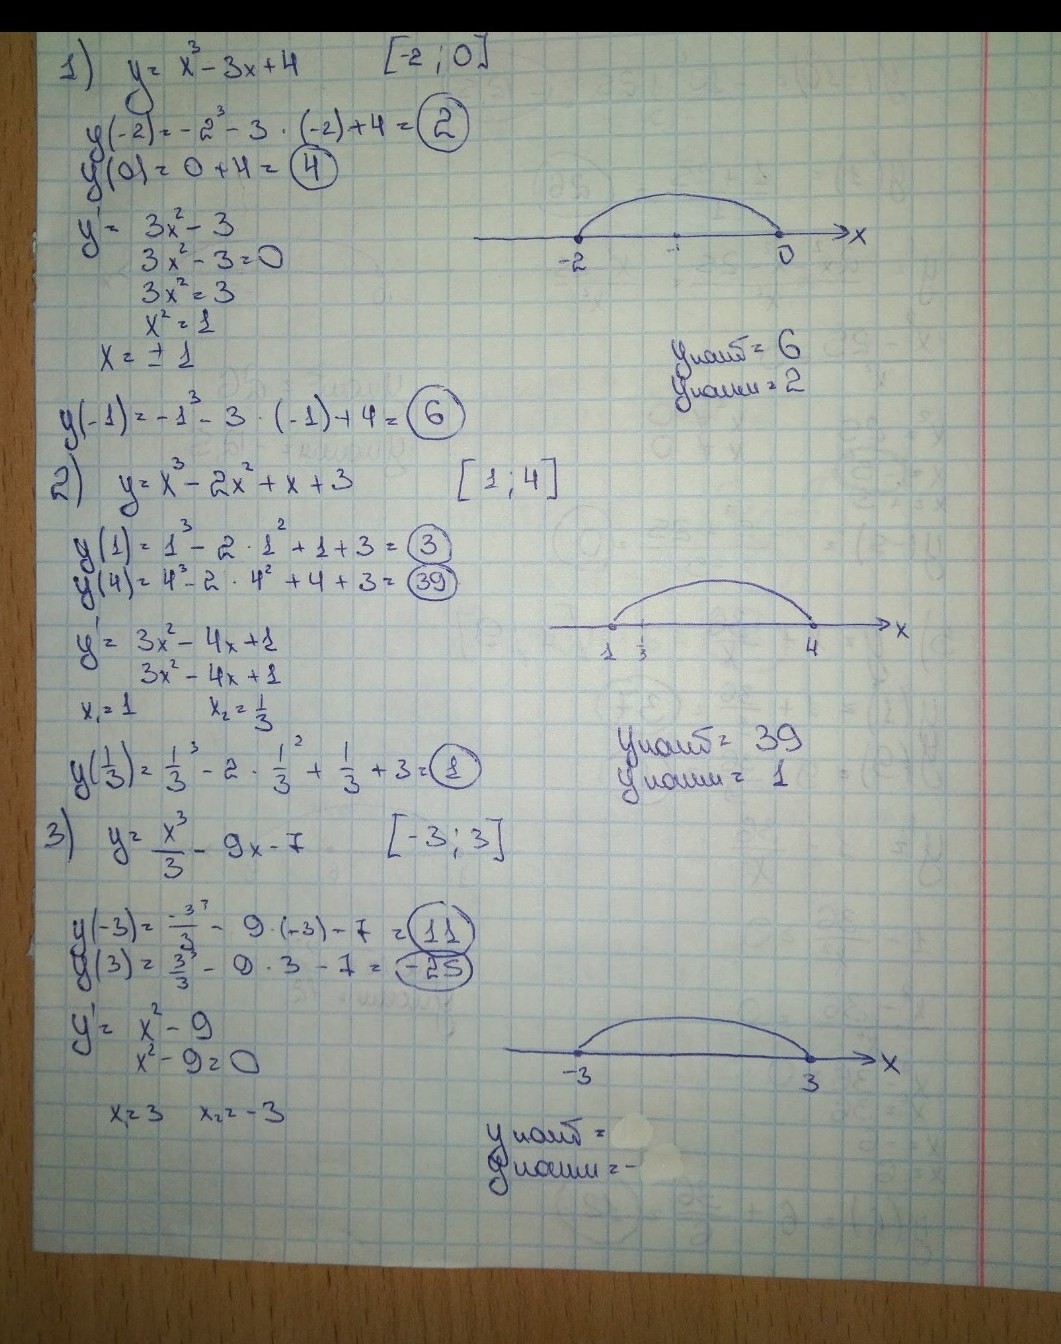 1) y = x³ - 3x + 4 [-2 ; 0]
y(-2) = -2³ - 3 · (-2) + 4 = 2
y(0) = 0 + 4 = 4
y' = 3x² - 3
3x² - 3 = 0
3x² = 3
x² = 1
x = ± 1
-2 -1 0 x
y наиб = 6
y наим = 2
y(-1) = -1³ - 3 · (-1) + 4 = 6
2) y = x³ - 2x² + x + 3 [1 ; 4]
y(1) = 1³ - 2 · 1² + 1 + 3 = 3
y(4) = 4³ - 2 · 4² + 4 + 3 = 39
y' = 3x² - 4x + 1
3x² - 4x + 1
x₁ = 1 x₂ = 1/3
1 1/3 4 x
y(1/3) = 1/3³ - 2 · 1/3² + 1/3 + 3 = 1
y наиб = 39
y наим = 1
3) y = x³/3 - 9x - 7 [-3 ; 3]
y(-3) = -3³/3 - 9 · (-3) - 7 = 11
y(3) = 3³/3 - 9 · 3 - 7 = -25
y' = x² - 9
x² - 9 = 0
x₁ = 3 x₂ = -3
-3 3 x
y наиб =
y наим = -